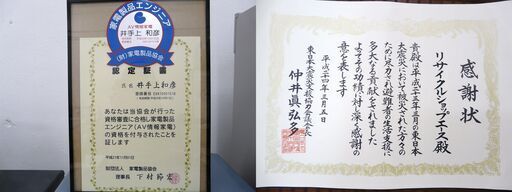 家電製品エンジニア
AV情報家電
井手上 和彦
(財)家電製品協会
認定証書
氏名 井手上和彦
あなたは当協会が行った
資格審査に合格し家電製品
エンジニア(AV情報家電)
の資格を付与されたことを
証します
財団法人 家電製品協会
理事長 下村節宏
感謝状
リサイクルショップエース殿
貴殿は平成二十三年三月の東日本
大震災において被災された方々の
ために尽力され避難者の生活支援に
多大なる貢献をされました
よってその功績に対し深く感謝の
意を表します
平成二十四年三月五日
仲井眞弘多